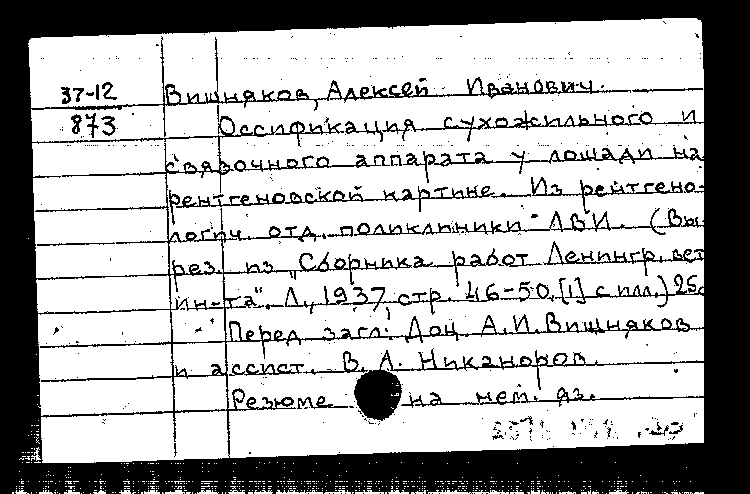 37-12
873
Вишняков, Алексей Иванович.
Оссификация сухожильного и
связочного аппарата у лошади на
рентгеновской картине. Из рентгено-
логич. отд. поликлиники ЛВИ. (Вы-
рез. из „Сборника работ Ленингр. вет
ин-та". Л., 1937, стр. 46-50, [1] с илл.) 25с
Перед загл: Доц. А.И. Вишняков
и ассист. В. А. Никаноров.
Резюме на нем. яз.